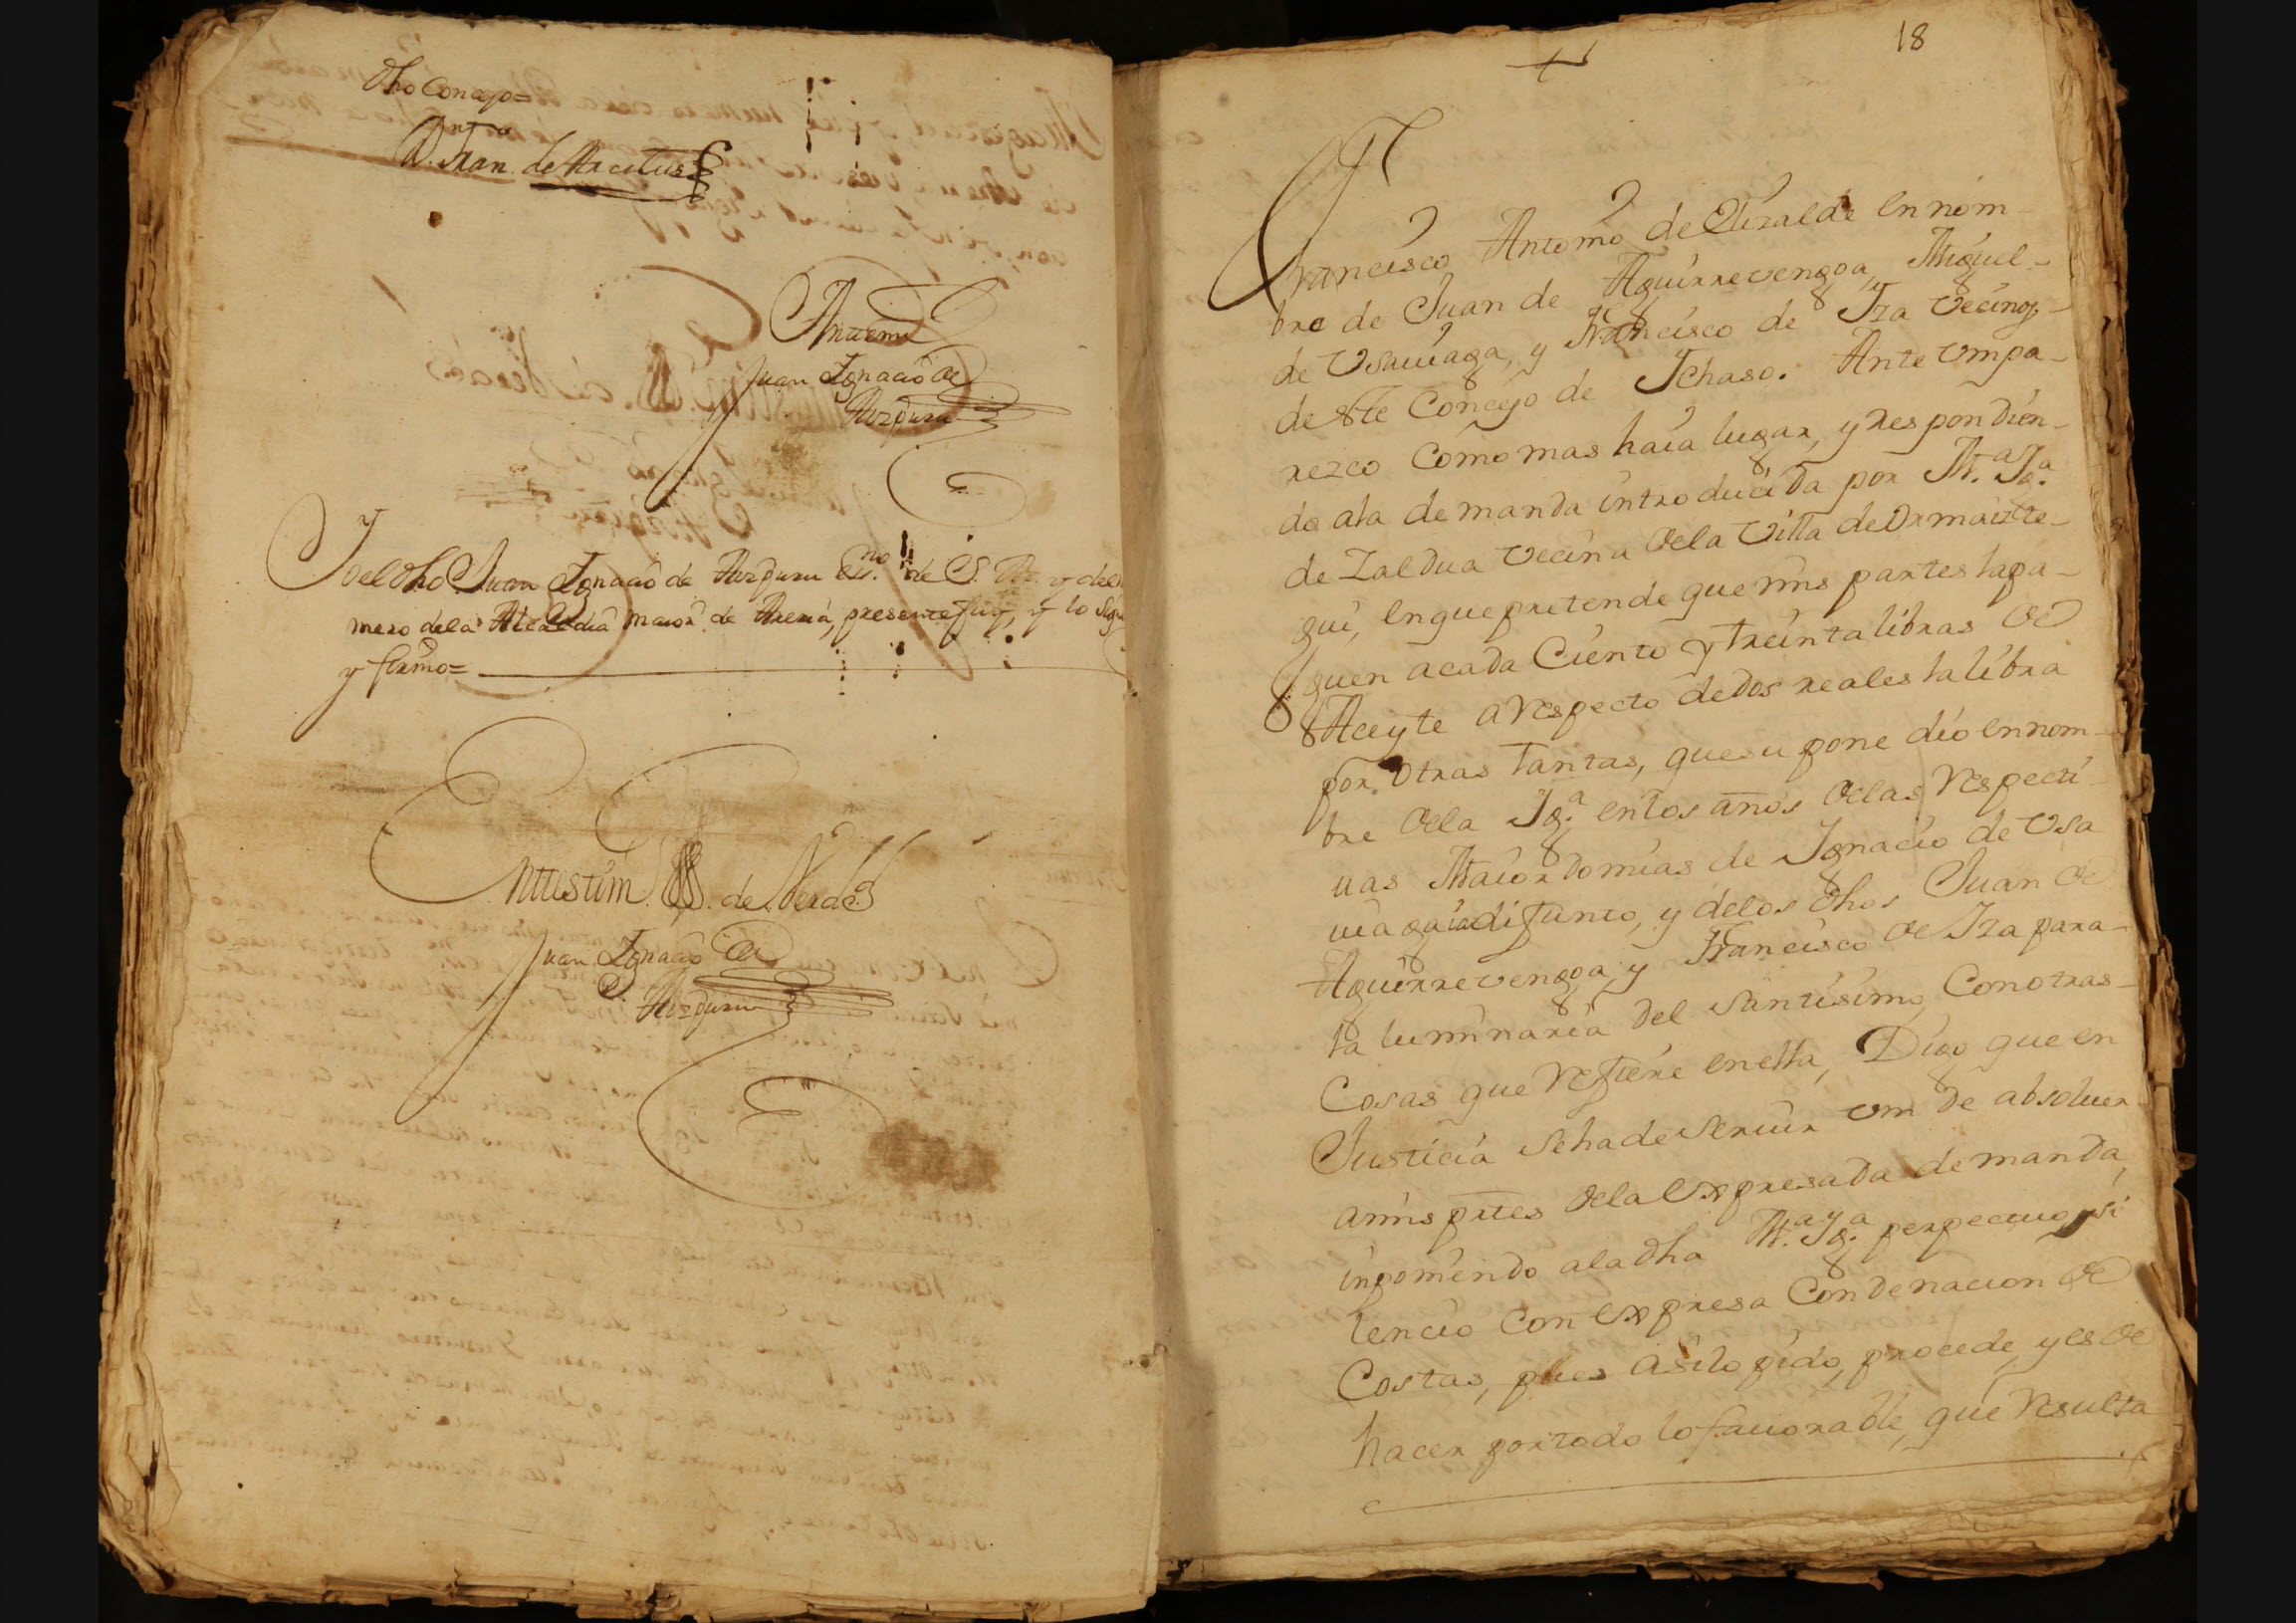 dho Concejo=
D.n Fran.co de Arcelus
Antemi
Juan Ignacio de
Aizpuru
Yo el dho Juan Ignacio de Aizpuru Ess.no de S. M. y del nu
mero dela Alcaldia maior de Areria, presente fuy, y lo sign
y firmo=
En testim.o de Verdad
Juan Ignacio de
Aizpuru
18
Francisco Antonio de Elizalde en nom-
bre de Juan de Aguirrevengoa, Miguel-
de Usauiaga, y Francisco de Iza vecinos-
de ste Concejo de Ichaso. Ante vm pa-
rezco como mas haia lugar, y respondien-
do ala demanda introducida por M.a Ig.a
de Zaldua vecina dela Villa de Ormaizte-
gui, en que pretende que mis partes la pa-
guen acada Ciento y treinta libras de
Aceyte a respecto de dos reales la libra
por otras tantas, que su pone dio en nom-
bre dela Ig.a en los años delas respecti-
uas Maiordomias de Ignacio de Usa
uiaga ia difunto, y delos dhos Juan de
Aguirrevengoa, y Francisco de Iza para-
la luminaria del Santisimo, Con otras-
Cosas que refiere en ella, Digo que en
Justicia se ha de seruir vm de absoluer
a mis ptes dela expresada demanda,
inponiendo ala dha M.a Ig.a perpectuo, si
lencio con expresa Condenacion de
Costas, pues asi lo pido, procede, y es de
hacer por todo lo fauorable, que resulta